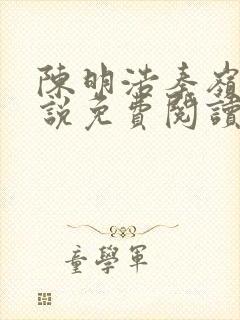 陳明浩秦嶺
說免費閱讀
童學軍